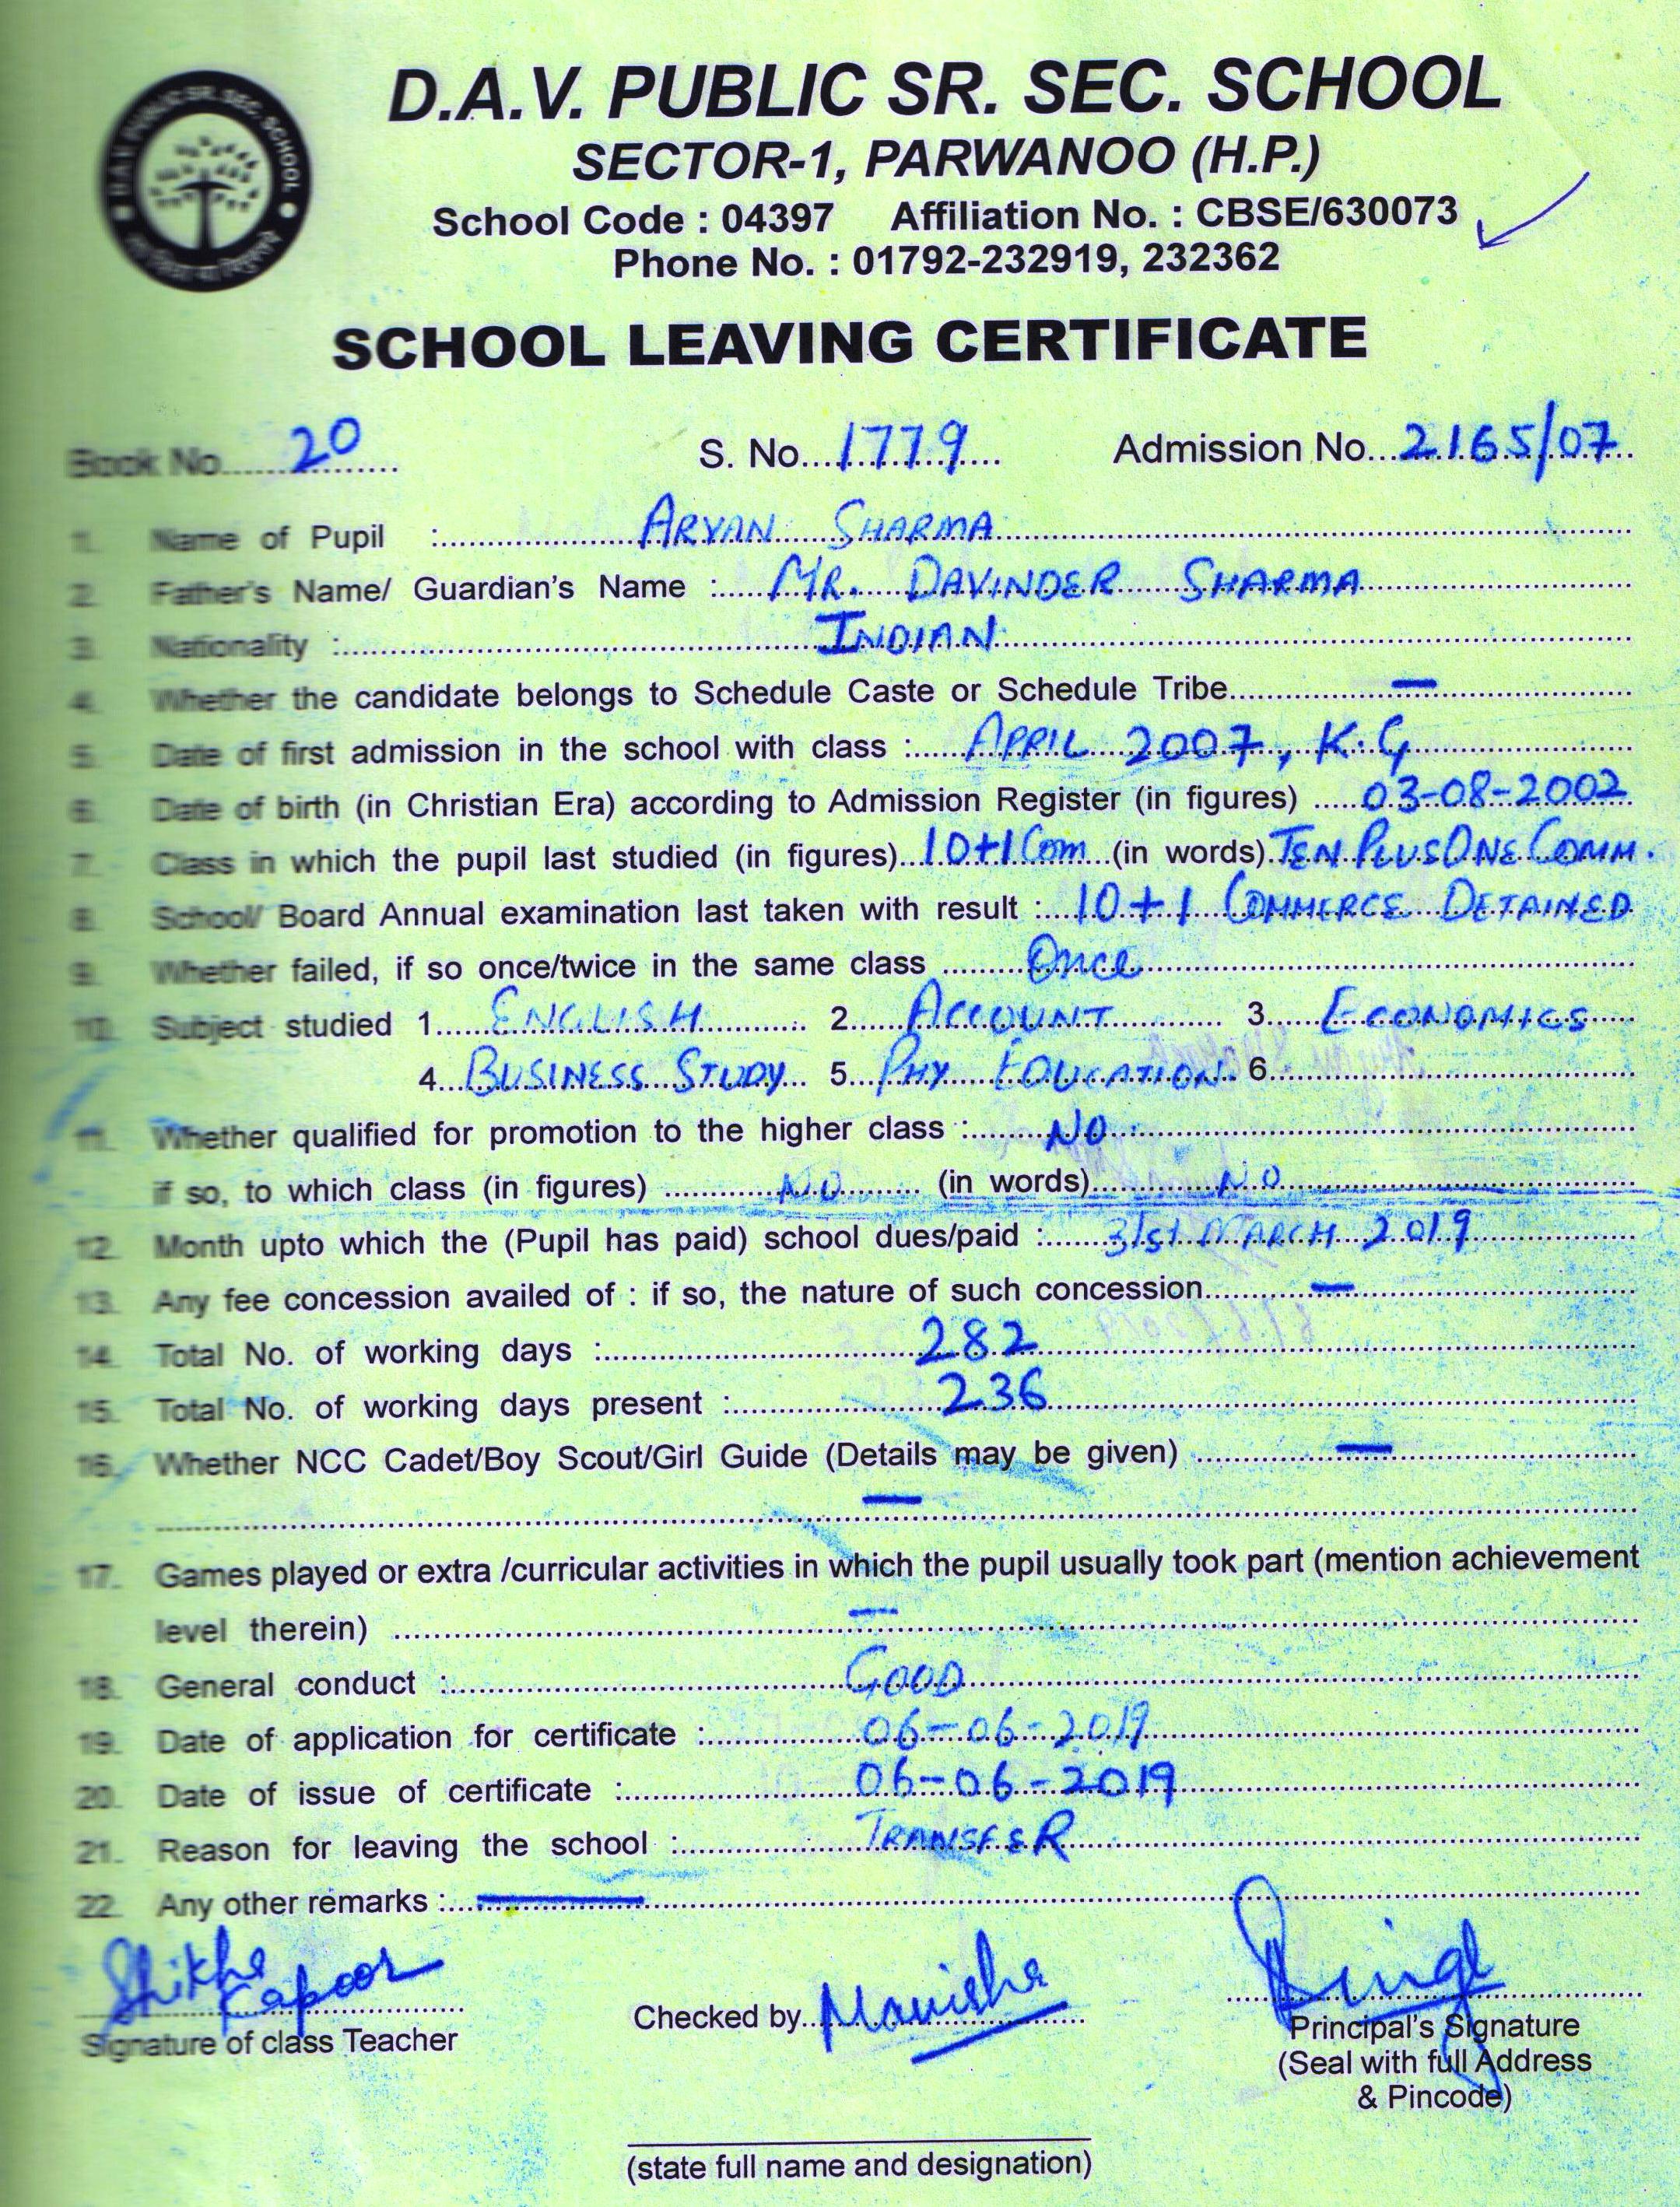 D.A.V. PUBLIC SR. SEC. SCHOOL
SECTOR-1, PARWANOO (H.P.)
School Code : 04397 Affiliation No. : CBSE/630073
Phone No. : 01792-232919, 232362
PUBLIC SR. SEC. SCHOOL
SCHOOL LEAVING CERTIFICATE
Book No. 20 S. No. 1779 Admission No. 2165/07
1. Name of Pupil : ARYAN SHARMA
2. Father's Name/ Guardian's Name : MR. DAVINDER SHARMA
3. Nationality : INDIAN
4. Whether the candidate belongs to Schedule Caste or Schedule Tribe —
5. Date of first admission in the school with class : APRIL 2007, K.G
6. Date of birth (in Christian Era) according to Admission Register (in figures) 03-08-2002
7. Class in which the pupil last studied (in figures) 10+1 Com (in words) TEN PLUS ONE COMM.
8. School/ Board Annual examination last taken with result : 10+1 COMMERCE DETAINED
9. Whether failed, if so once/twice in the same class Once
10. Subject studied 1. ENGLISH 2. ACCOUNT 3. ECONOMICS
4. BUSINESS STUDY 5. PHY EDUCATION 6.
11. Whether qualified for promotion to the higher class : NO
if so, to which class (in figures) NO (in words) NO
12. Month upto which the (Pupil has paid) school dues/paid : 31st MARCH 2019
13. Any fee concession availed of : if so, the nature of such concession —
14. Total No. of working days : 282
15. Total No. of working days present : 236
16. Whether NCC Cadet/Boy Scout/Girl Guide (Details may be given) —
—
17. Games played or extra /curricular activities in which the pupil usually took part (mention achievement
level therein) —
18. General conduct : GOOD
19. Date of application for certificate : 06-06-2019
20. Date of issue of certificate : 06-06-2019
21. Reason for leaving the school : TRANSFER
22. Any other remarks : —
Shikha Kapoor
Signature of class Teacher
Checked by Manisha
Principal's Signature
(Seal with full Address
& Pincode)
(state full name and designation)